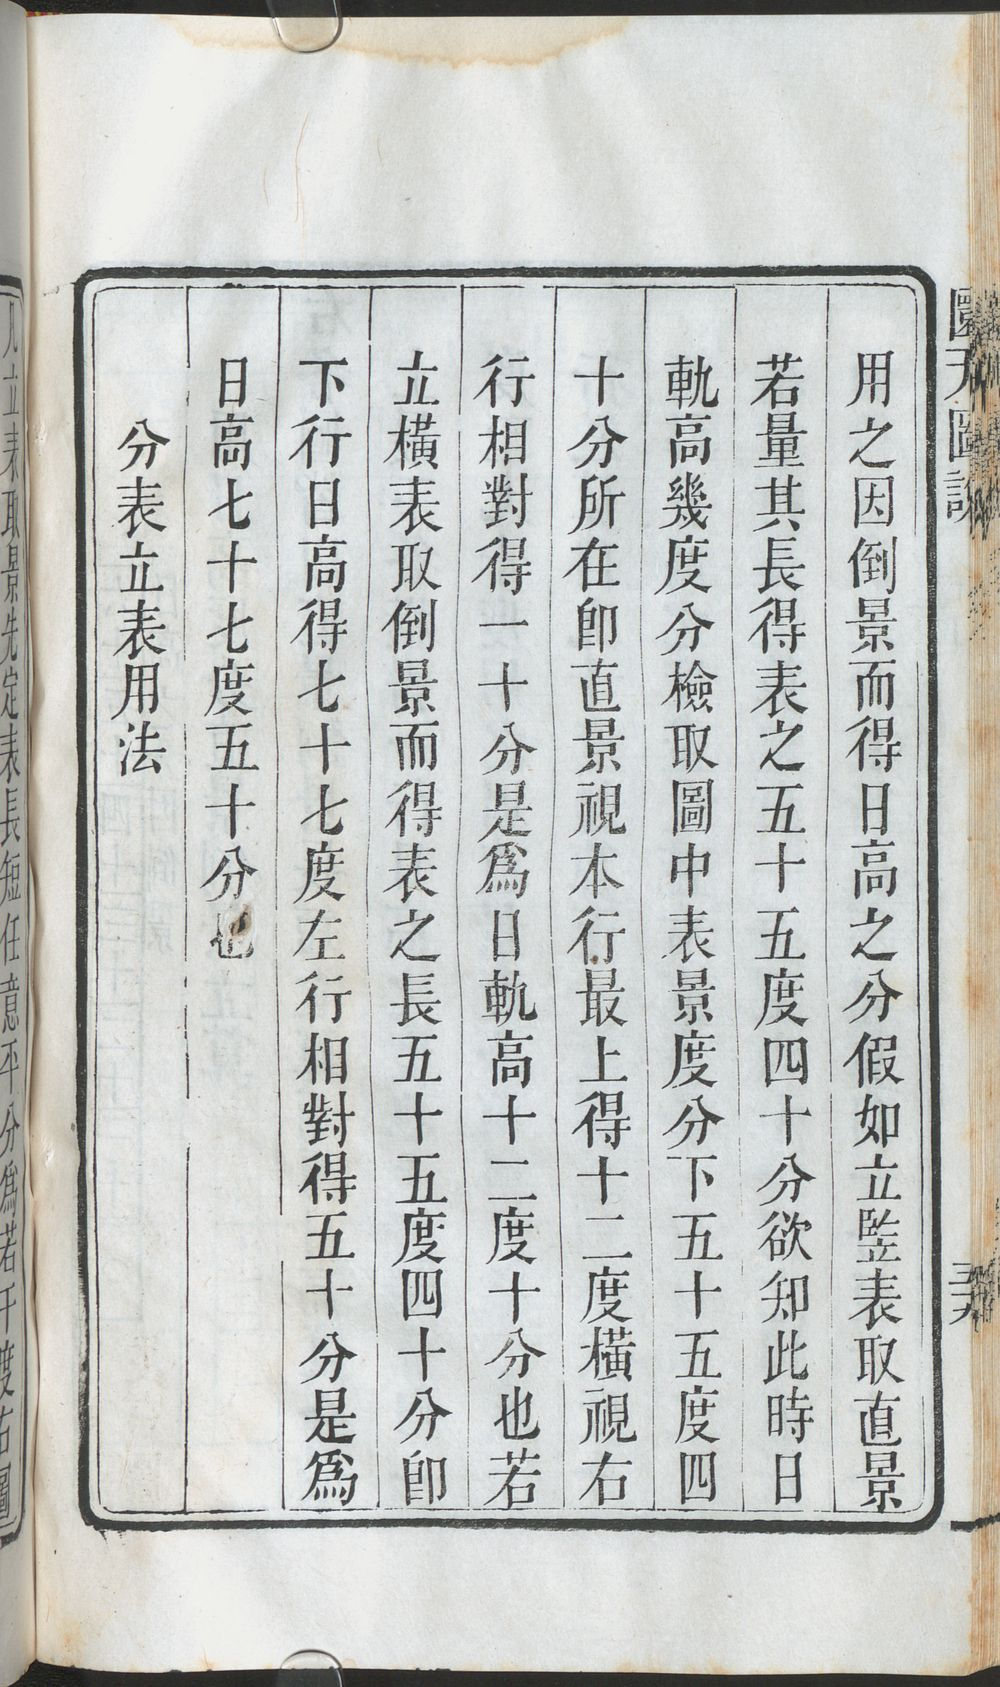 用之因倒景而得日高之分假如立竪表取直景
若量其長得表之五十五度四十分欲知此時日
軌高幾度分檢取圖中表景度分下五十五度四
十分所在卽直景視本行最上得十二度橫視右
行相對得一十分是爲日軌高十二度十分也若
立橫表取倒景而得表之長五十五度四十分卽
下行日高得七十七度左行相對得五十分是爲
日高七十七度五十分也
分表立表用法
凡立表取景先定表長短任意平分爲若干度右圖